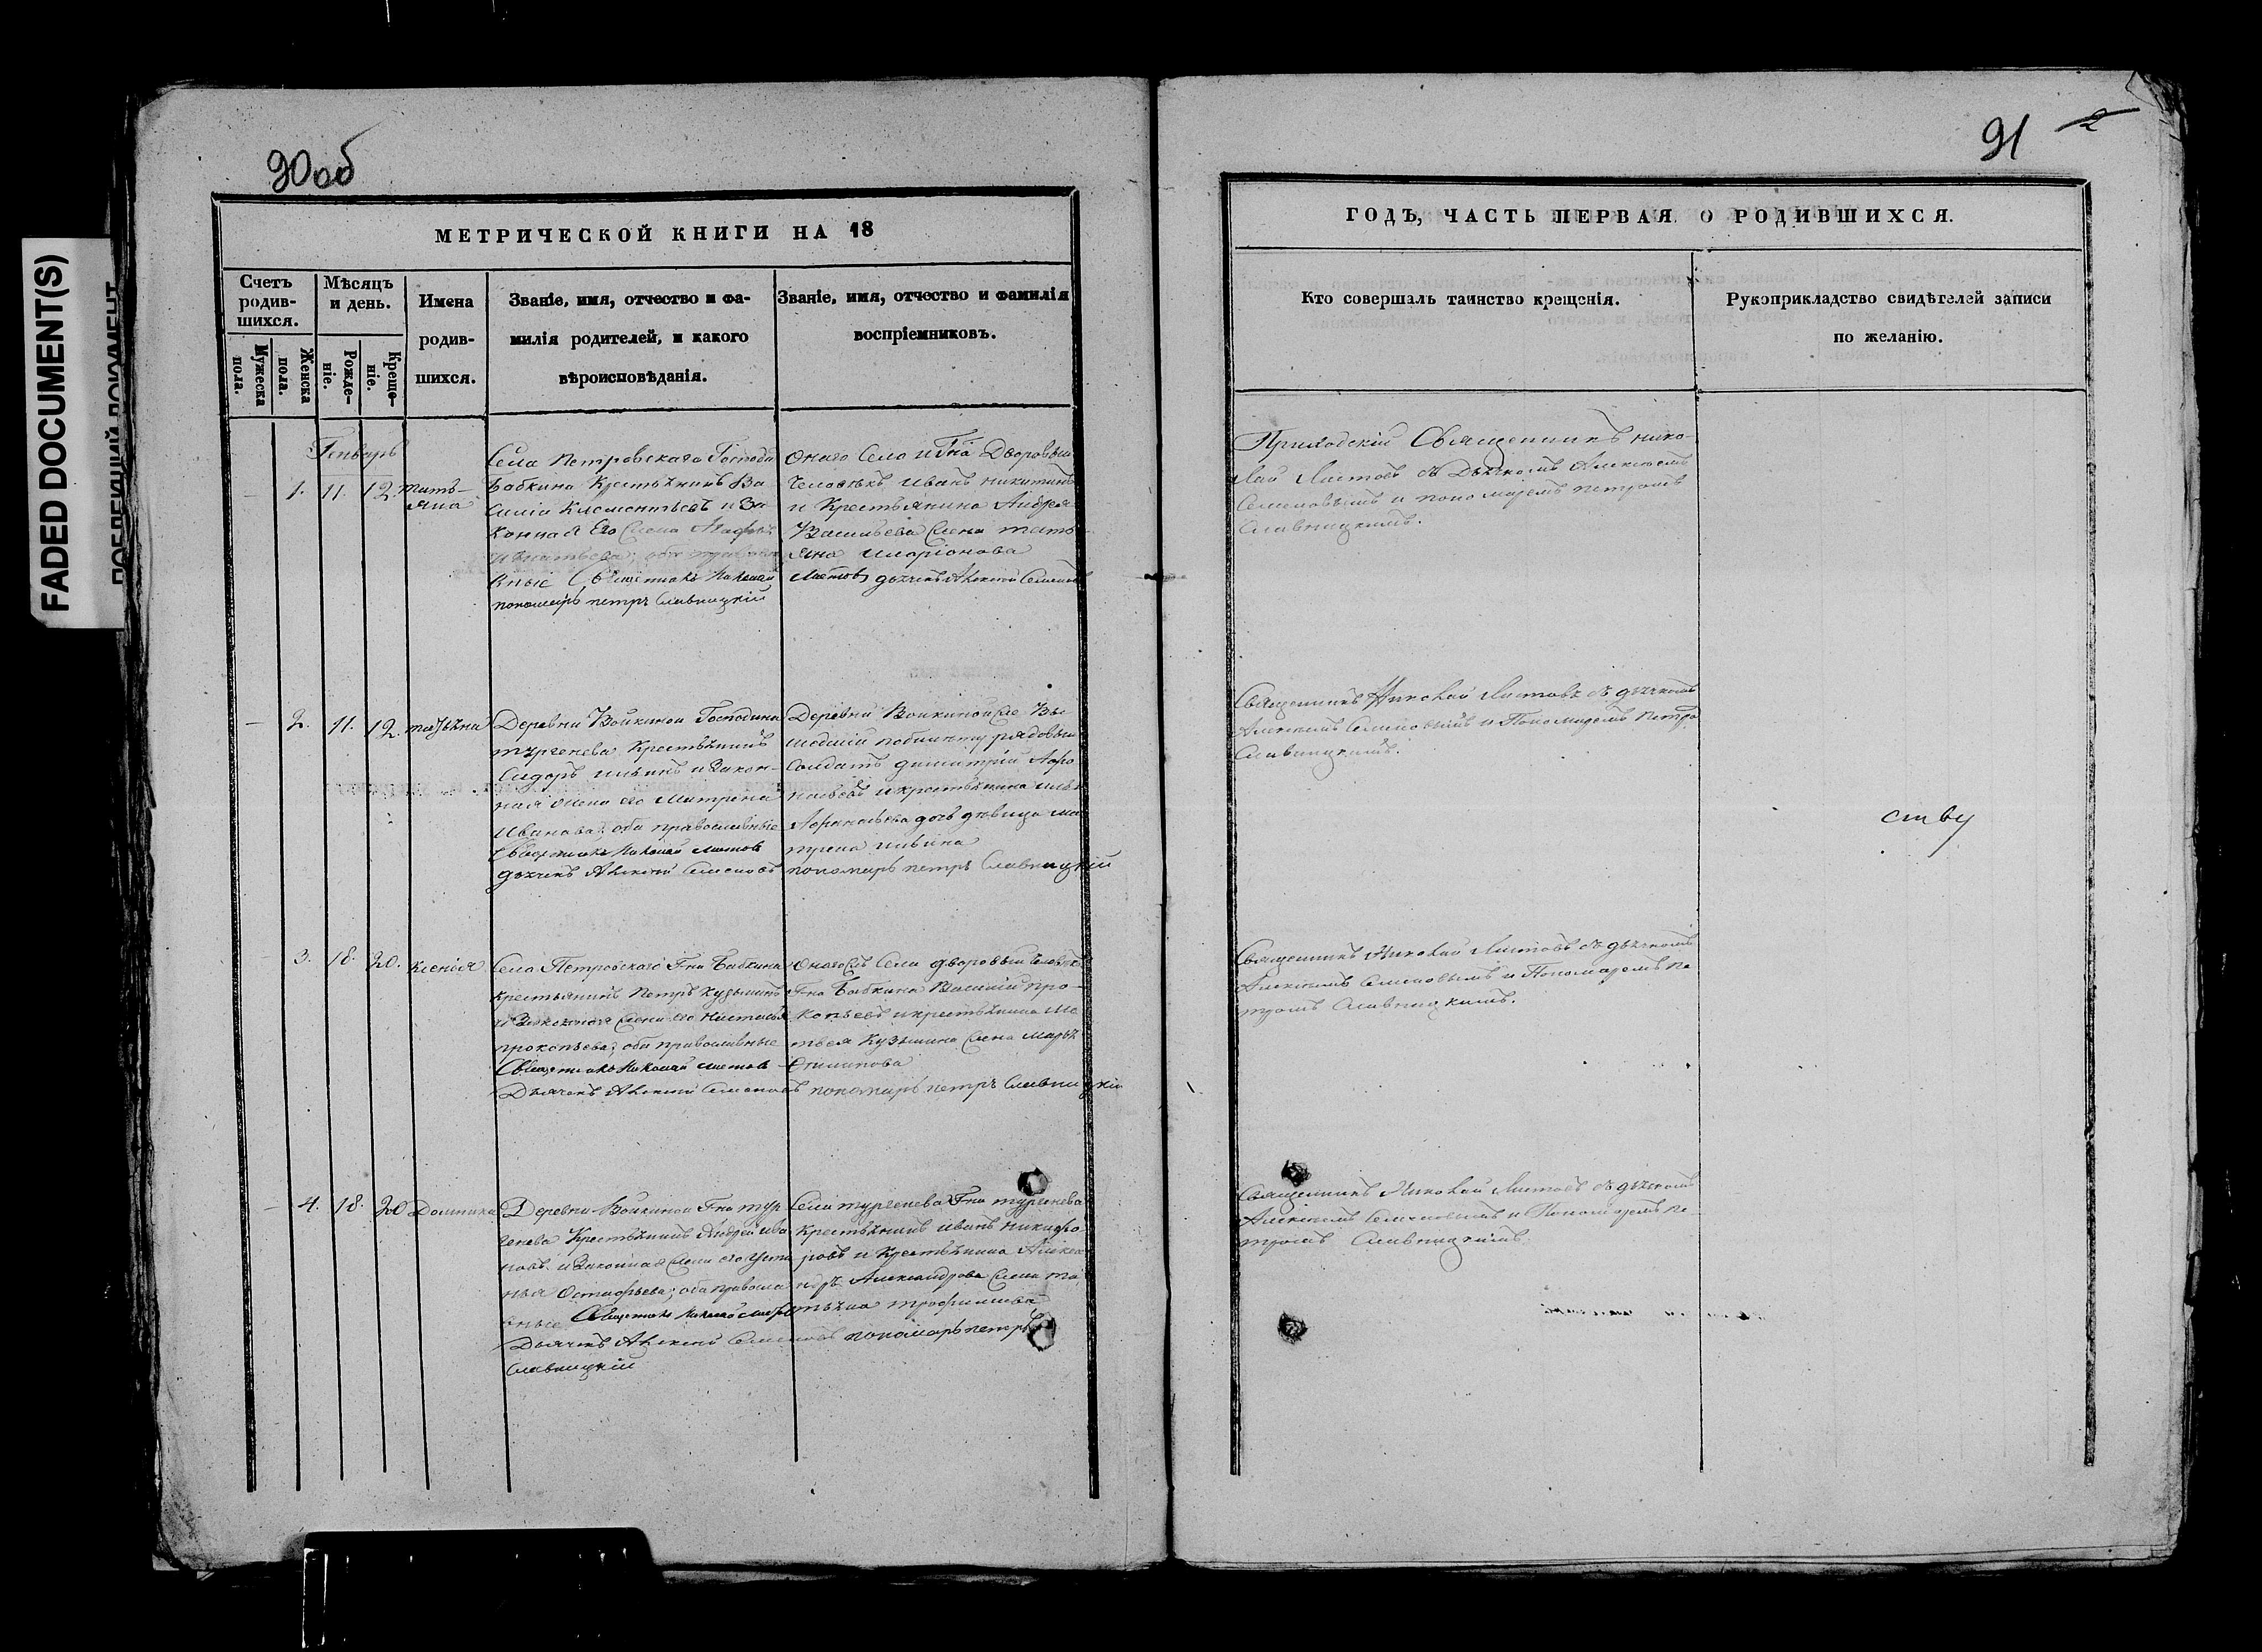 FADED DOCUMENT(S)
90об
МЕТРИЧЕСКОЙ КНИГИ НА 18
Счетъ родив-шихся.
Мѣсяцъ и день.
Имена родив-шихся.
Званіе, имя, отчество и фа-
милія родителей, и какого
вѣроисповѣданія.
Званіе, имя, отчество и фамилія
воспріемниковъ.
Мужеска пола.
Женска пола.
Рожде-ніе.
Креще-ніе.
Генварь
1. 11. 12. Тать-
яна
Села Петровскаго Господи
Бабкина Крестьянинъ Ва
силій Клементьевъ и За
конная Его
вные Священникъ Николай
пономарь петръ Славницкій
Онаго Села и Гна Дворовый
Человѣкъ Иванъ Никитинъ
и Крестьянина Андрея
Васильева Жена тать
яна Иларіонова
Листовъ дьячекъ Алексѣй Семеновъ
2. 11. 12.
Деревни Войкиной Господина
тургенева Крестьянинъ
Сидоръ ильинъ и закон-
ная жена его Матрена
Иванова; оба православные
Священникъ Николай Листовъ
дьячекъ Алексѣй Семеновъ
Деревни Войкиной
рядовый
Солдатъ димитрій Афо
насьевъ и крестьянина ильи
Афанасьева дочь дѣвица ма
трена ильина
пономарь петръ Славницкій
3. 18. 20. Ксенія
Села Петровскаго Гна Бабкина
крестьянинъ Петръ Кузьминъ
и Законная Жена его Настасья
прокопьева; оба православные
Священникъ Николай Листовъ
Дьячекъ Алексѣй Семеновъ пономарь петръ Славницкій
Села дворовый Человѣкъ
Гна Бабкина Василій про-
копьевъ и крестьянина Ма
твея Кузьмина Жена марья
4. 18. 20 Домника
Деревни Войкиной Гна тур
генева Крестьянинъ Андрей ива
новъ и Законная Жена его Усти
нья Остафьева; оба правосла
вные Священникъ Николай Листовъ
Дьячекъ Алексѣй Семеновъ пономарь петръ
Славницкій
Села тургенева Гна тургенева
Крестьянинъ иванъ никифо
ровъ и Крестьянина Алекса
ндра Александрова Жена та
тьяна трофимова
91 2
ГОДЪ, ЧАСТЬ ПЕРВАЯ О РОДИВШИХСЯ.
Кто совершалъ таинство крещенія.
Рукоприкладство свидѣтелей записи
по желанію.
Приходскій Священникъ Нико-
лай Листовъ съ Дьячкомъ Алексѣемъ
Семеновымъ и пономаремъ петромъ
Славницкимъ.
Священникъ Николай Листовъ съ дьячкомъ
Алексѣемъ Семеновымъ и Пономаремъ Петро
Славницкимъ.
ству
Священникъ Николай Листовъ съ дьячкомъ
Алексѣемъ Семеновымъ и Пономаремъ Пе
тромъ Славницкимъ.
Священникъ Николай Листовъ съ дьячкомъ
Алексѣемъ Семеновымъ и Пономаремъ Пе-
тромъ Славницкимъ.